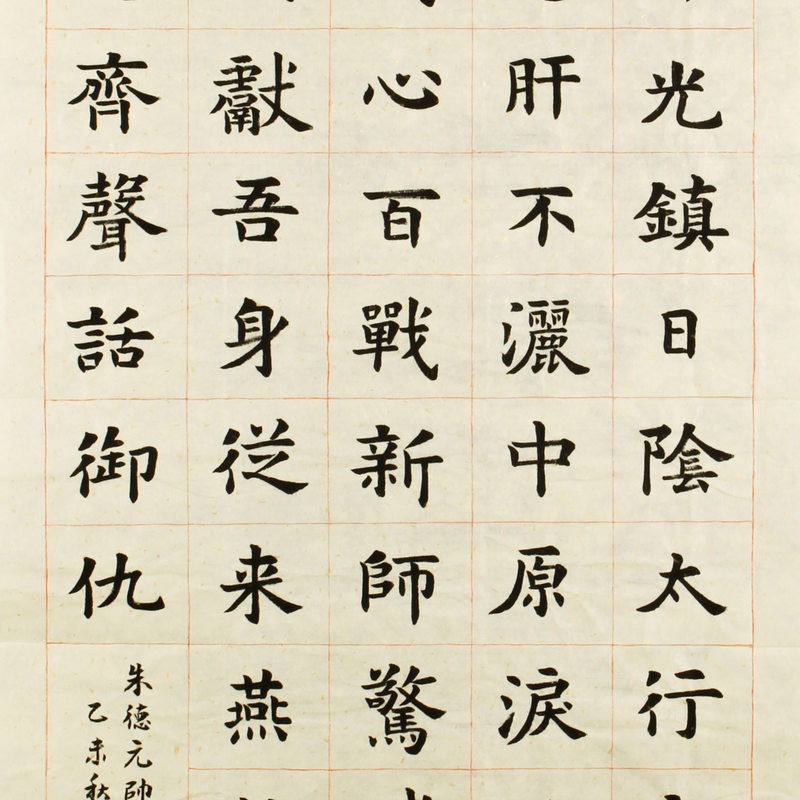 光鎮日陰太行
肝不灑中原淚
心百戰新師驚
獻吾身從来燕
齊聲話御仇
朱德元帥
乙未秋